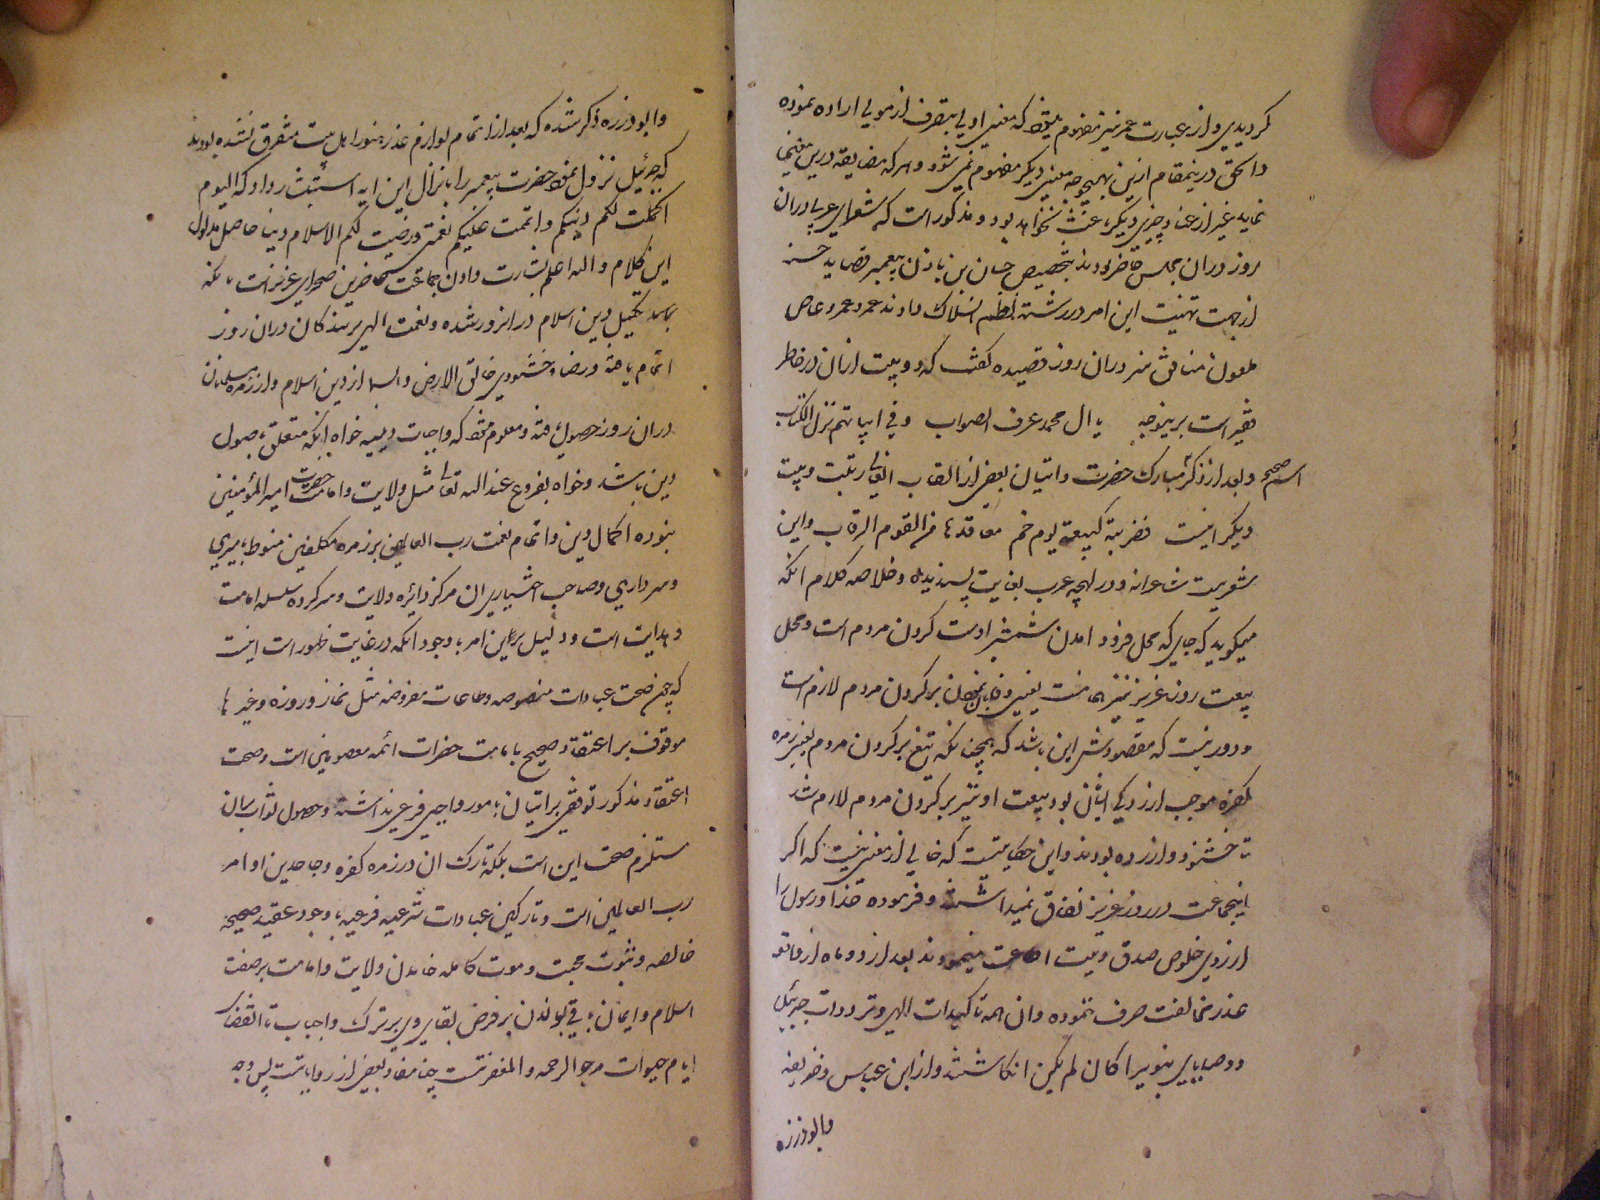 کردیدی و از عبارت عمر نیز مفهوم میشود که معنی اولی بتصرف از مولی اراده نموده
و الحق درینمقام ازین بهیچوجه معنی دیکر مفهوم نمی شود و هر که مضایقه درین معنی
نماید غیر از عناد چیزی دیکر باعث نخواهد بود و مذکور است که شعرای عرب دران
روز دران مجلس حاضر بودند بتخصیص حسان بن ثابت باذن پیغمبر قصاید حسنه
از جهت تهنیت این امر در رشته نظم انسلاک دادند عمرو عاص
ملعون منافق نیز دران روز قصیده گفت که دو بیت ازان در خاطر
فقیر است برینوجه بال محمد عرف الصواب و فی ابیاتهم نزل الکتاب
و بعد از ذکر اسم مبارک حضرت و اتیان بعض از القاب رتبت و بیت
دیکر اینست فضربته کبیعة یوم خم معاقدها من القوم الرقاب و این
شعریست شاعرانه و در لهجه عرب بغایت پسندیده و خلاصه کلام انکه
میکوید که جایی که محل فرود امدن شمشیر اوست کردن مردم است و محل
بیعت روز غدیر نیز همانست یعنی بر کردن مردم لازم است
و دور نیست که مقصودش این باشد که همچنانکه تیغ بر کردن مردم
کفره موجب بود بیعت او نیز بر کردن مردم لازم شد
تا خشنود و ازرده بودند و این حکایتیست که خالی از معنی نیست که اکر
اینجماعت در روز غدیر نفاق نمیداشتند و فرموده خدا و رسول را
از روی خلوص صدق و نیت اطاعت مینمودند بعد از دو ماه از واقعه
غدیر مخالفت صرف ننموده و ان همه تاکیدات الهی و ترددات جبرئیل
و وصایای نبوی را کان لم یکن انکاشتند و از ابن عباس و حذیفه
و ابوذر ره
و ابوذر ره ذکر شده که بعد از اتمام لوازم غدیر هنوز اهل بیعت متفرق نشده بودند
که جبرئیل نزول نمود حضرت پیغمبر را بانزال این ایه بشارت داد که الیوم
اکملت لکم دینکم و اتممت علیکم نعمتی و رضیت لکم الاسلام دینا حاصل مدلول
این کلام و الله اعلم بشارت دادن جماعت حاضرین صحرای غدیرست بانکه
تکمیل دین اسلام در انروز شده و نعمت الهی بر بندکان دران روز
اتمام یافته و رضا و خشنودی خالق الارض و السما از دین اسلام و از زمره مسلمانان
دران روز حصول یافته و معلوم شد که واجبات دینیه خواه انکه متعلق باصول
دین باشد و خواه بفروع عند الله تعالی مثل ولایت و امامت حضرت امیر المؤمنین
نبوده اکمال دین و اتمام نعمت رب العالمین بر زمره مکلفین منوط بامیری
و سرداری و صاحب اختیاری ان مرکز دائره ولایت و سرکرده سلسله امامت
و هدایت است و دلیل بر این امر با وجود انکه در غایت ظهور است اینست
که چون صحت عبادات منصوصه و طاعات مفروضه مثل نماز و روزه و غیرها
موقوف بر اعتقاد صحیح بامامت حضرات ائمه معصومین است و صحت
اعتقاد مذکور توقفی بر اتیان بامور واجبی فرعی نداشته و حصول ثواب بران
مستلزم صحت این است بلکه تارک ان در زمره کفره و جاحدین اوامر
رب العالمین است و تارکین عبادات شرعیه فرعیه با وجود عقیده صحیحه
خالصه و ثبوت محبت و مودت کامله خاندان ولایت و امامت بر صفت
اسلام و ایمان باقی بودن بر فرض بقای وی بر ترک واجبات تا انقضای
ایام حیوات مرجو الرحمه و المغفرتست چنانچه مفاد بعضی از روایاتست پس وجه